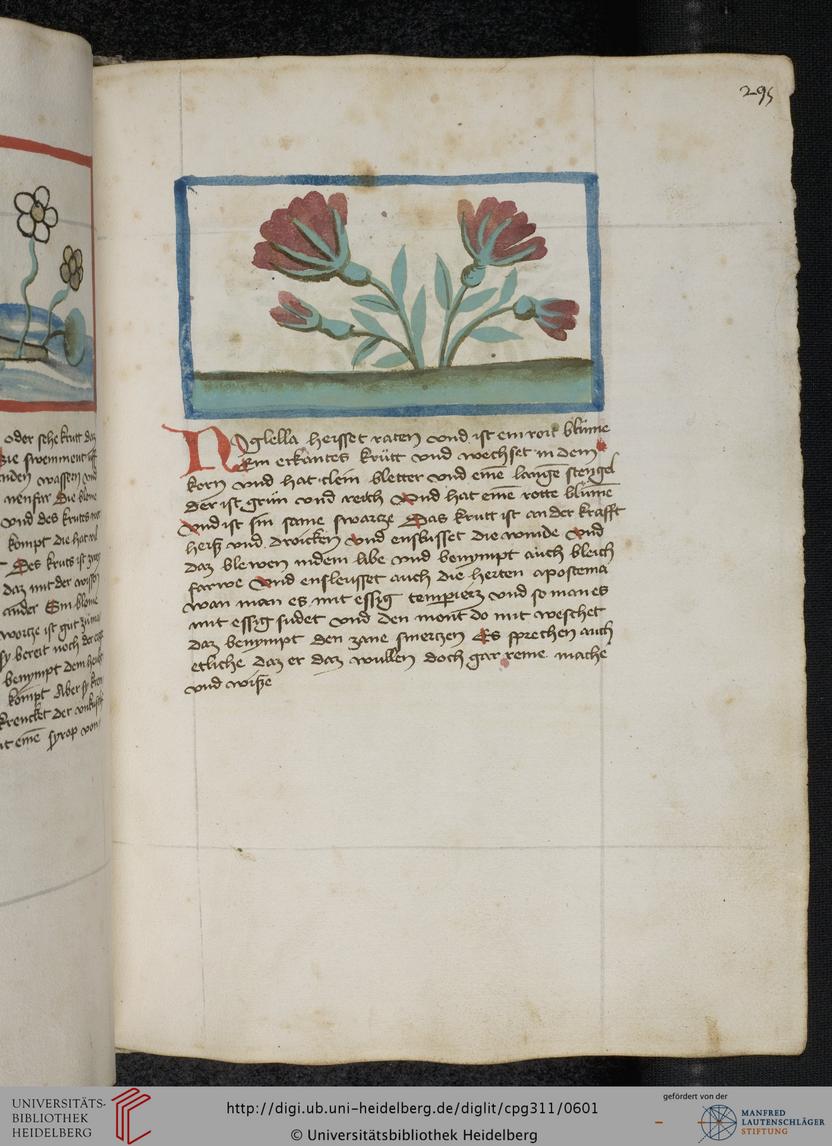 295
Niglella heisset raten vnd ist ein rott blume
Ein erkantes krutt vnd wechset in dem
korn vnd hat clein bletter vnd eine lange stengel
der ist grun vnd reich Vnd hat eine rotte blume
Vnd ist sin same swartze Das krutt ist an der krafft
heiß vnd drocken Vnd enslusset die winde Vnd
daz blewen in dem libe vnd benympt auch bleich
farwe Vnd ensleusset auch die herten apostema
wan man es mit essyg tempierz vnd so man es
mit essyg sudet vnd den mont do mit weschet
daz benympt den zane smertzen Es sprechen auch
etliche daz er daz wullen doch gar reine mache
vnd wiße
oder sehe krutt daz
die swemment uff
wassern vnd
nenfar Die blome
vnd des kruts
kompt die hat
Des kruts ist zwey
daz mit der wissen
ander Ein blome
wortze ist gut
sy bereit noch der
benympt dem
kompt Aber sy
krencket der
mit eine syrop von
UNIVERSITÄTS-
BIBLIOTHEK
HEIDELBERG
http://digi.ub.uni-heidelberg.de/diglit/cpg311/0601
© Universitätsbibliothek Heidelberg
gefördert von der
MANFRED
LAUTENSCHLÄGER
STIFTUNG